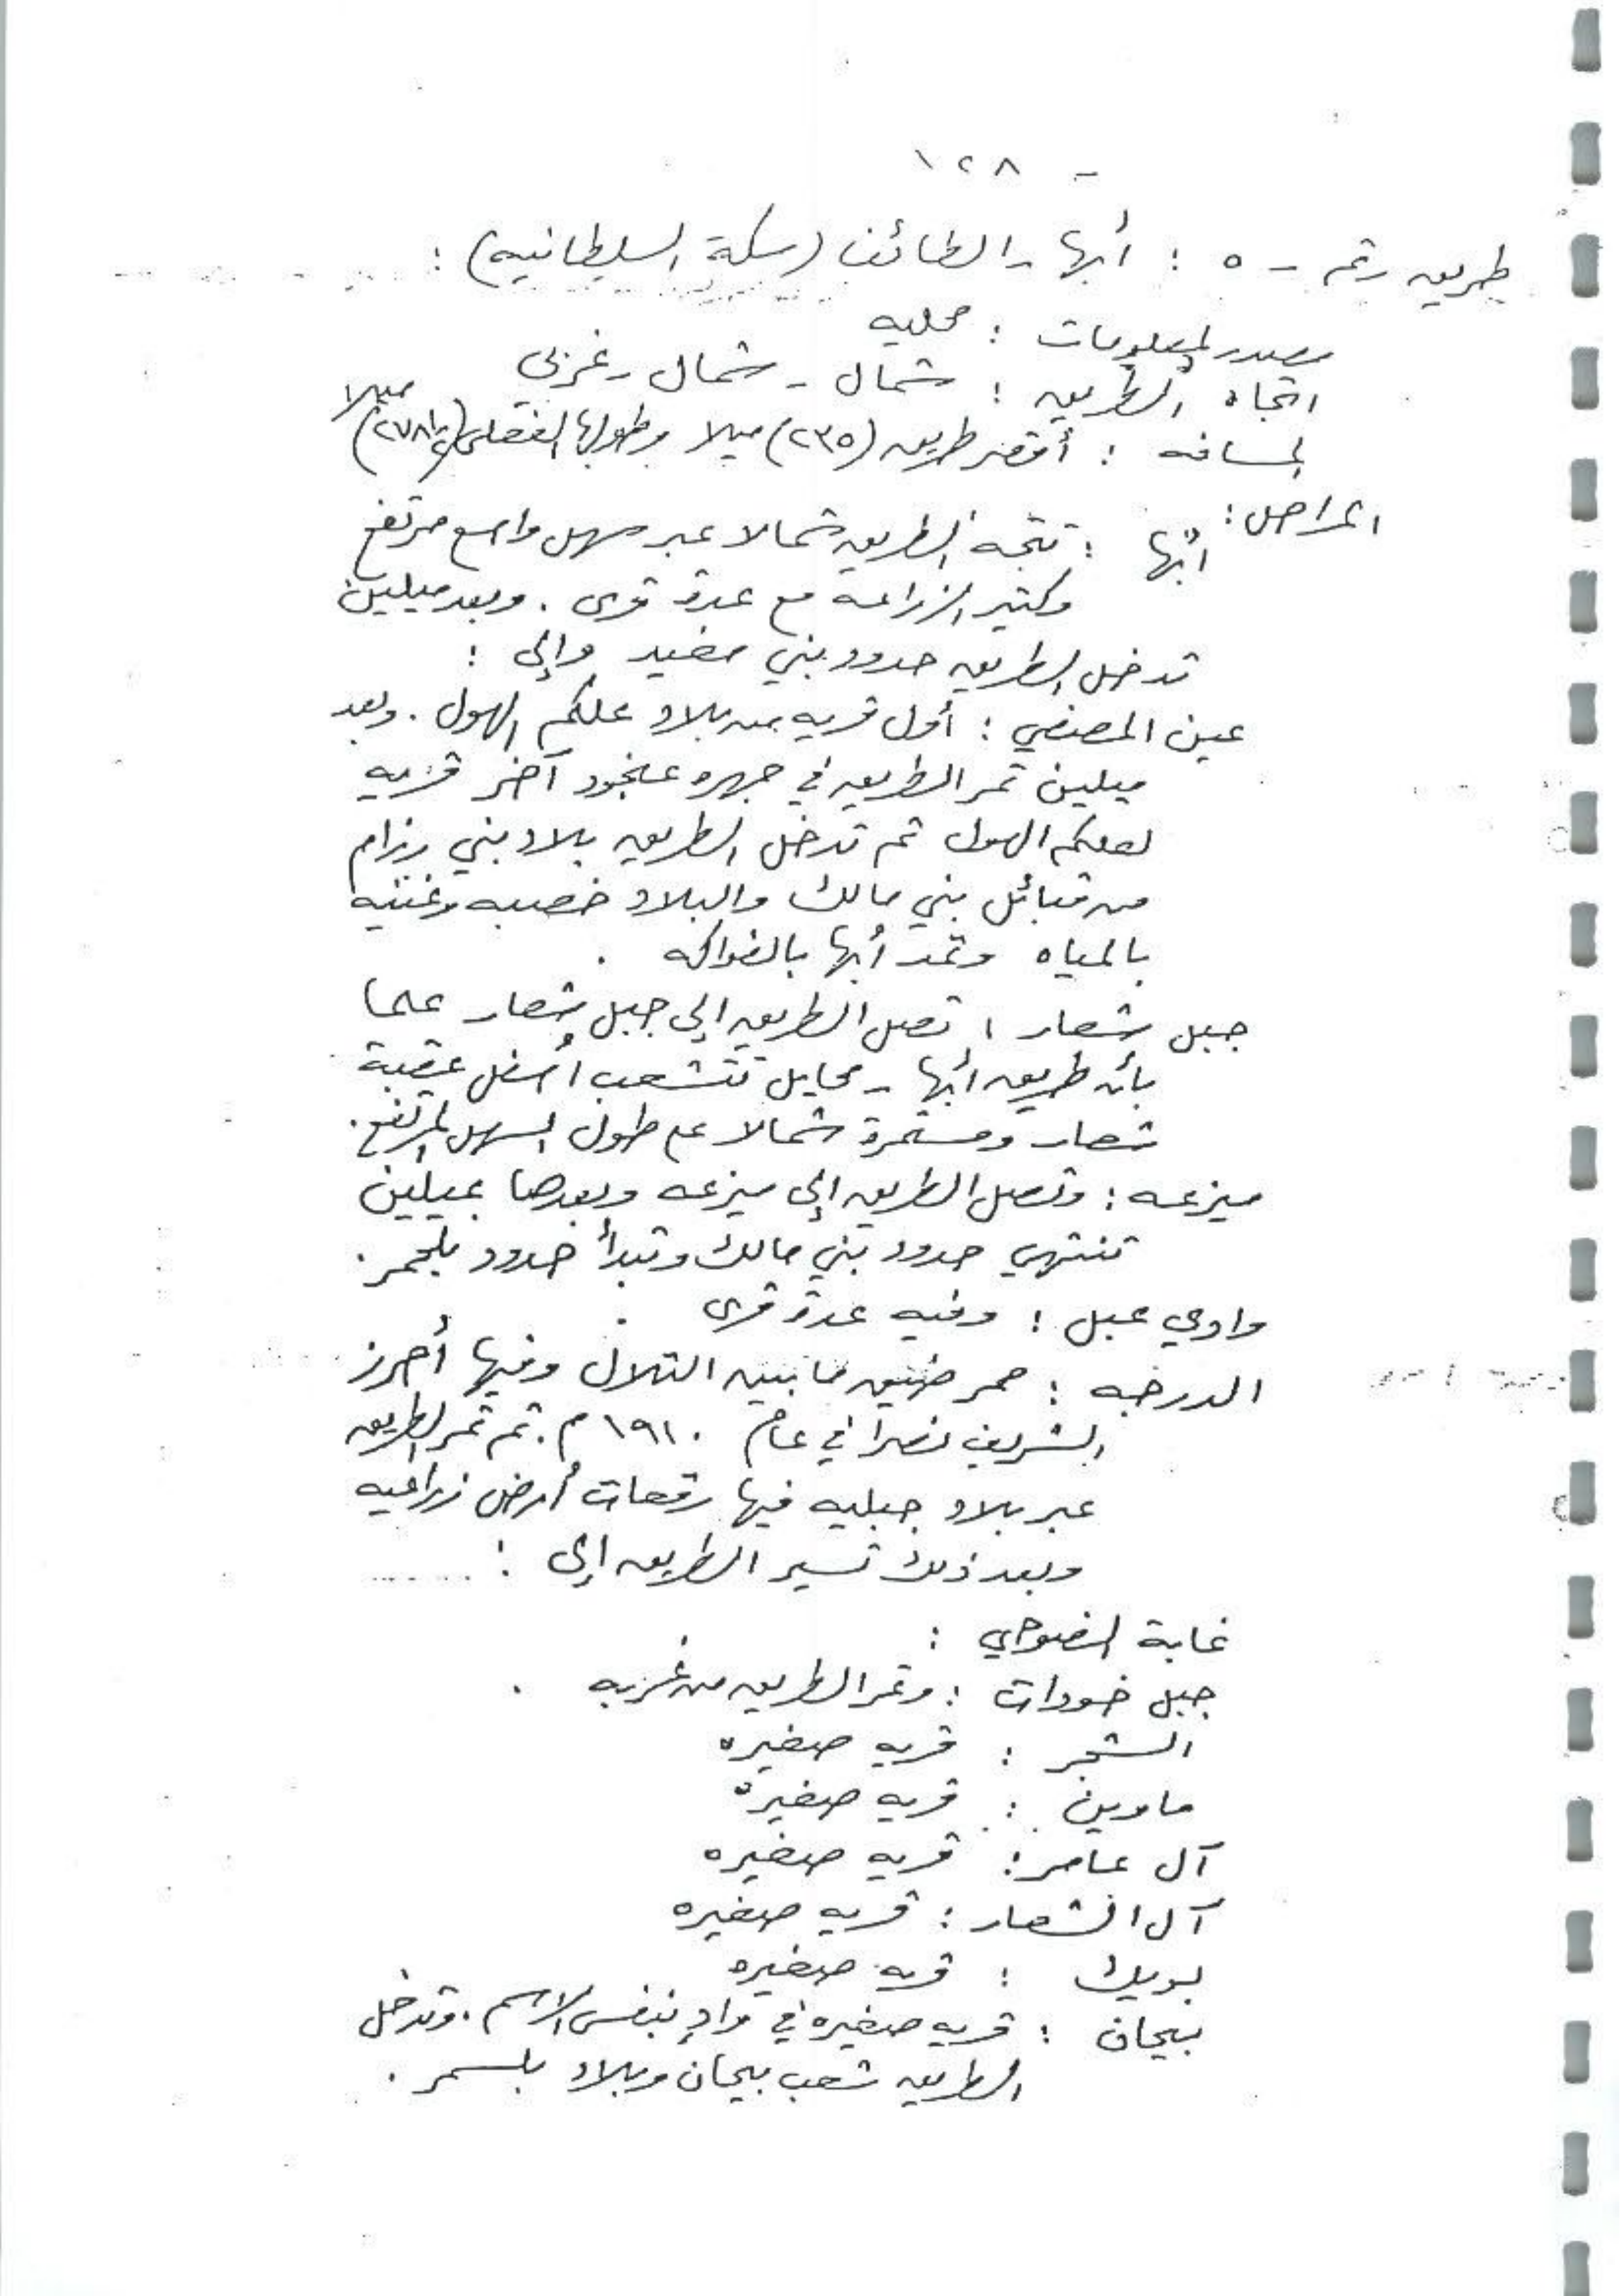 ١٢٨ -
طريق رقم - ٥ : أبها - الطائف (سكة السلطانيه) :
مصدر المعلومات : محليه
اتجاه الطريق : شمال - شمال - غربي
المسافه : أقصر طريق (٢٣٥) ميلا وطولها الفعلي (٢٧٨ ١/٢) ميلا
المراحل :
أبها : تتجه الطريق شمالا عبر سهل واسع مرتفع
وكثير الزراعه مع عدة قرى . وبعد ميلين
تدخل الطريق حدود بني مغيد وإلى :
عين : أول قريه من بلاد علكم الهول . وبعد
ميلين تمر الطريق في آخر قريه
لعلكم الهول ثم تدخل الطريق بلاد بني رزام
من قبائل بني مالك والبلاد خصبه وغنيه
بالمياه وتمد أبها بالفواكه .
جبل شعار : تصل الطريق إلى جبل شعار علما
بأن طريق أبها - محايل تتشعب أسفل عقبة
شعار ومستمرة شمالا مع طول السهل المرتفع .
ميزعه : وتصل الطريق إلى ميزعه وبعدها بميلين
تنتهي حدود بني مالك وتبدأ حدود بلحمر .
وادي عبل : وفيه عدة قرى .
الدرجه : ممر ضيق ما بين التلال وفيها أحرز
الشريف نصرا في عام ١٩١٠ م . ثم تمر الطريق
عبر بلاد جبليه فيها رقعات أرض زراعيه
وبعد ذلك تسير الطريق إلى :
غابة :
جبل : وتمر الطريق من غربه .
الشجر : قريه صغيره
ماوين : قريه صغيرة
آل عامر : قريه صغيره
آل الشعار : قريه صغيره
بويك : قريه صغيره
بيحان : قريه صغيره في وادٍ بنفس الاسم . وتدخل
الطريق شعب بيحان وبلاد بلسمر .